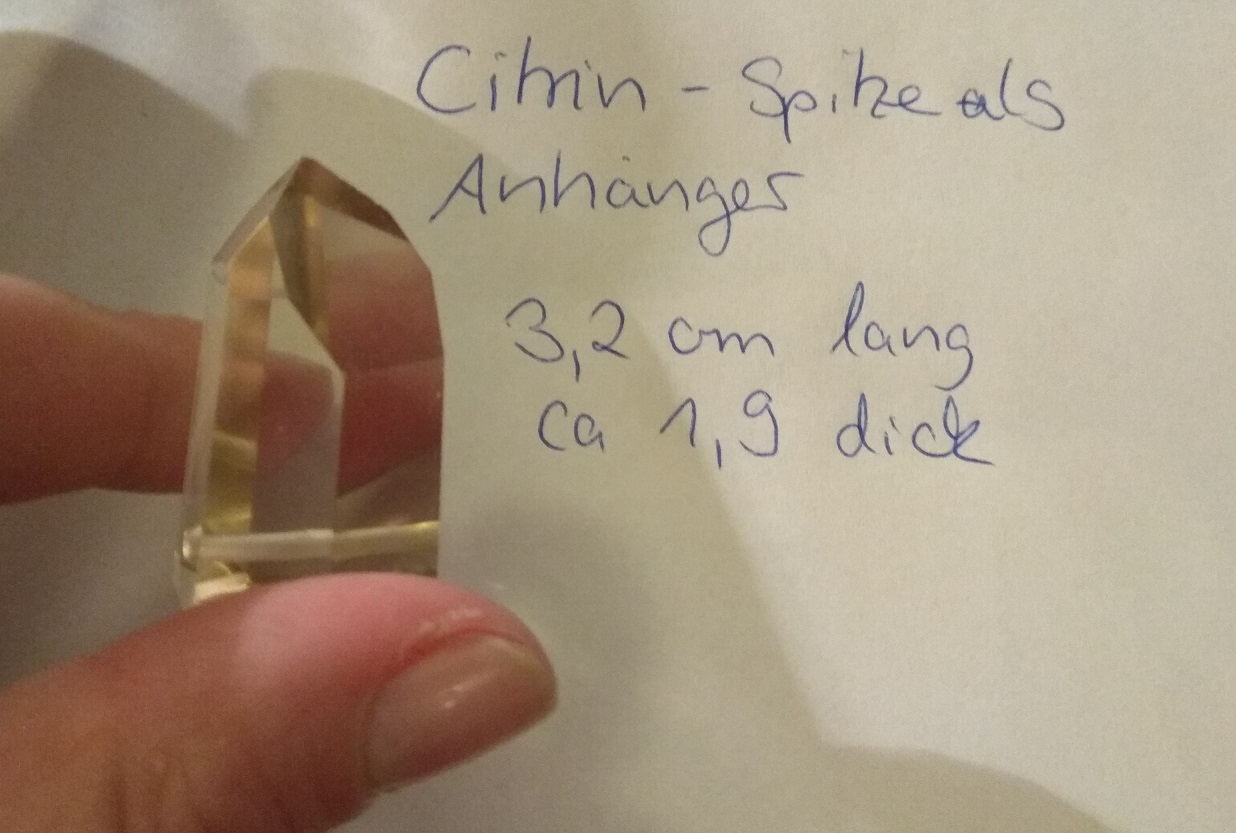 Citrin - Spitze als
Anhänger
3,2 cm lang
ca 1,9 dick